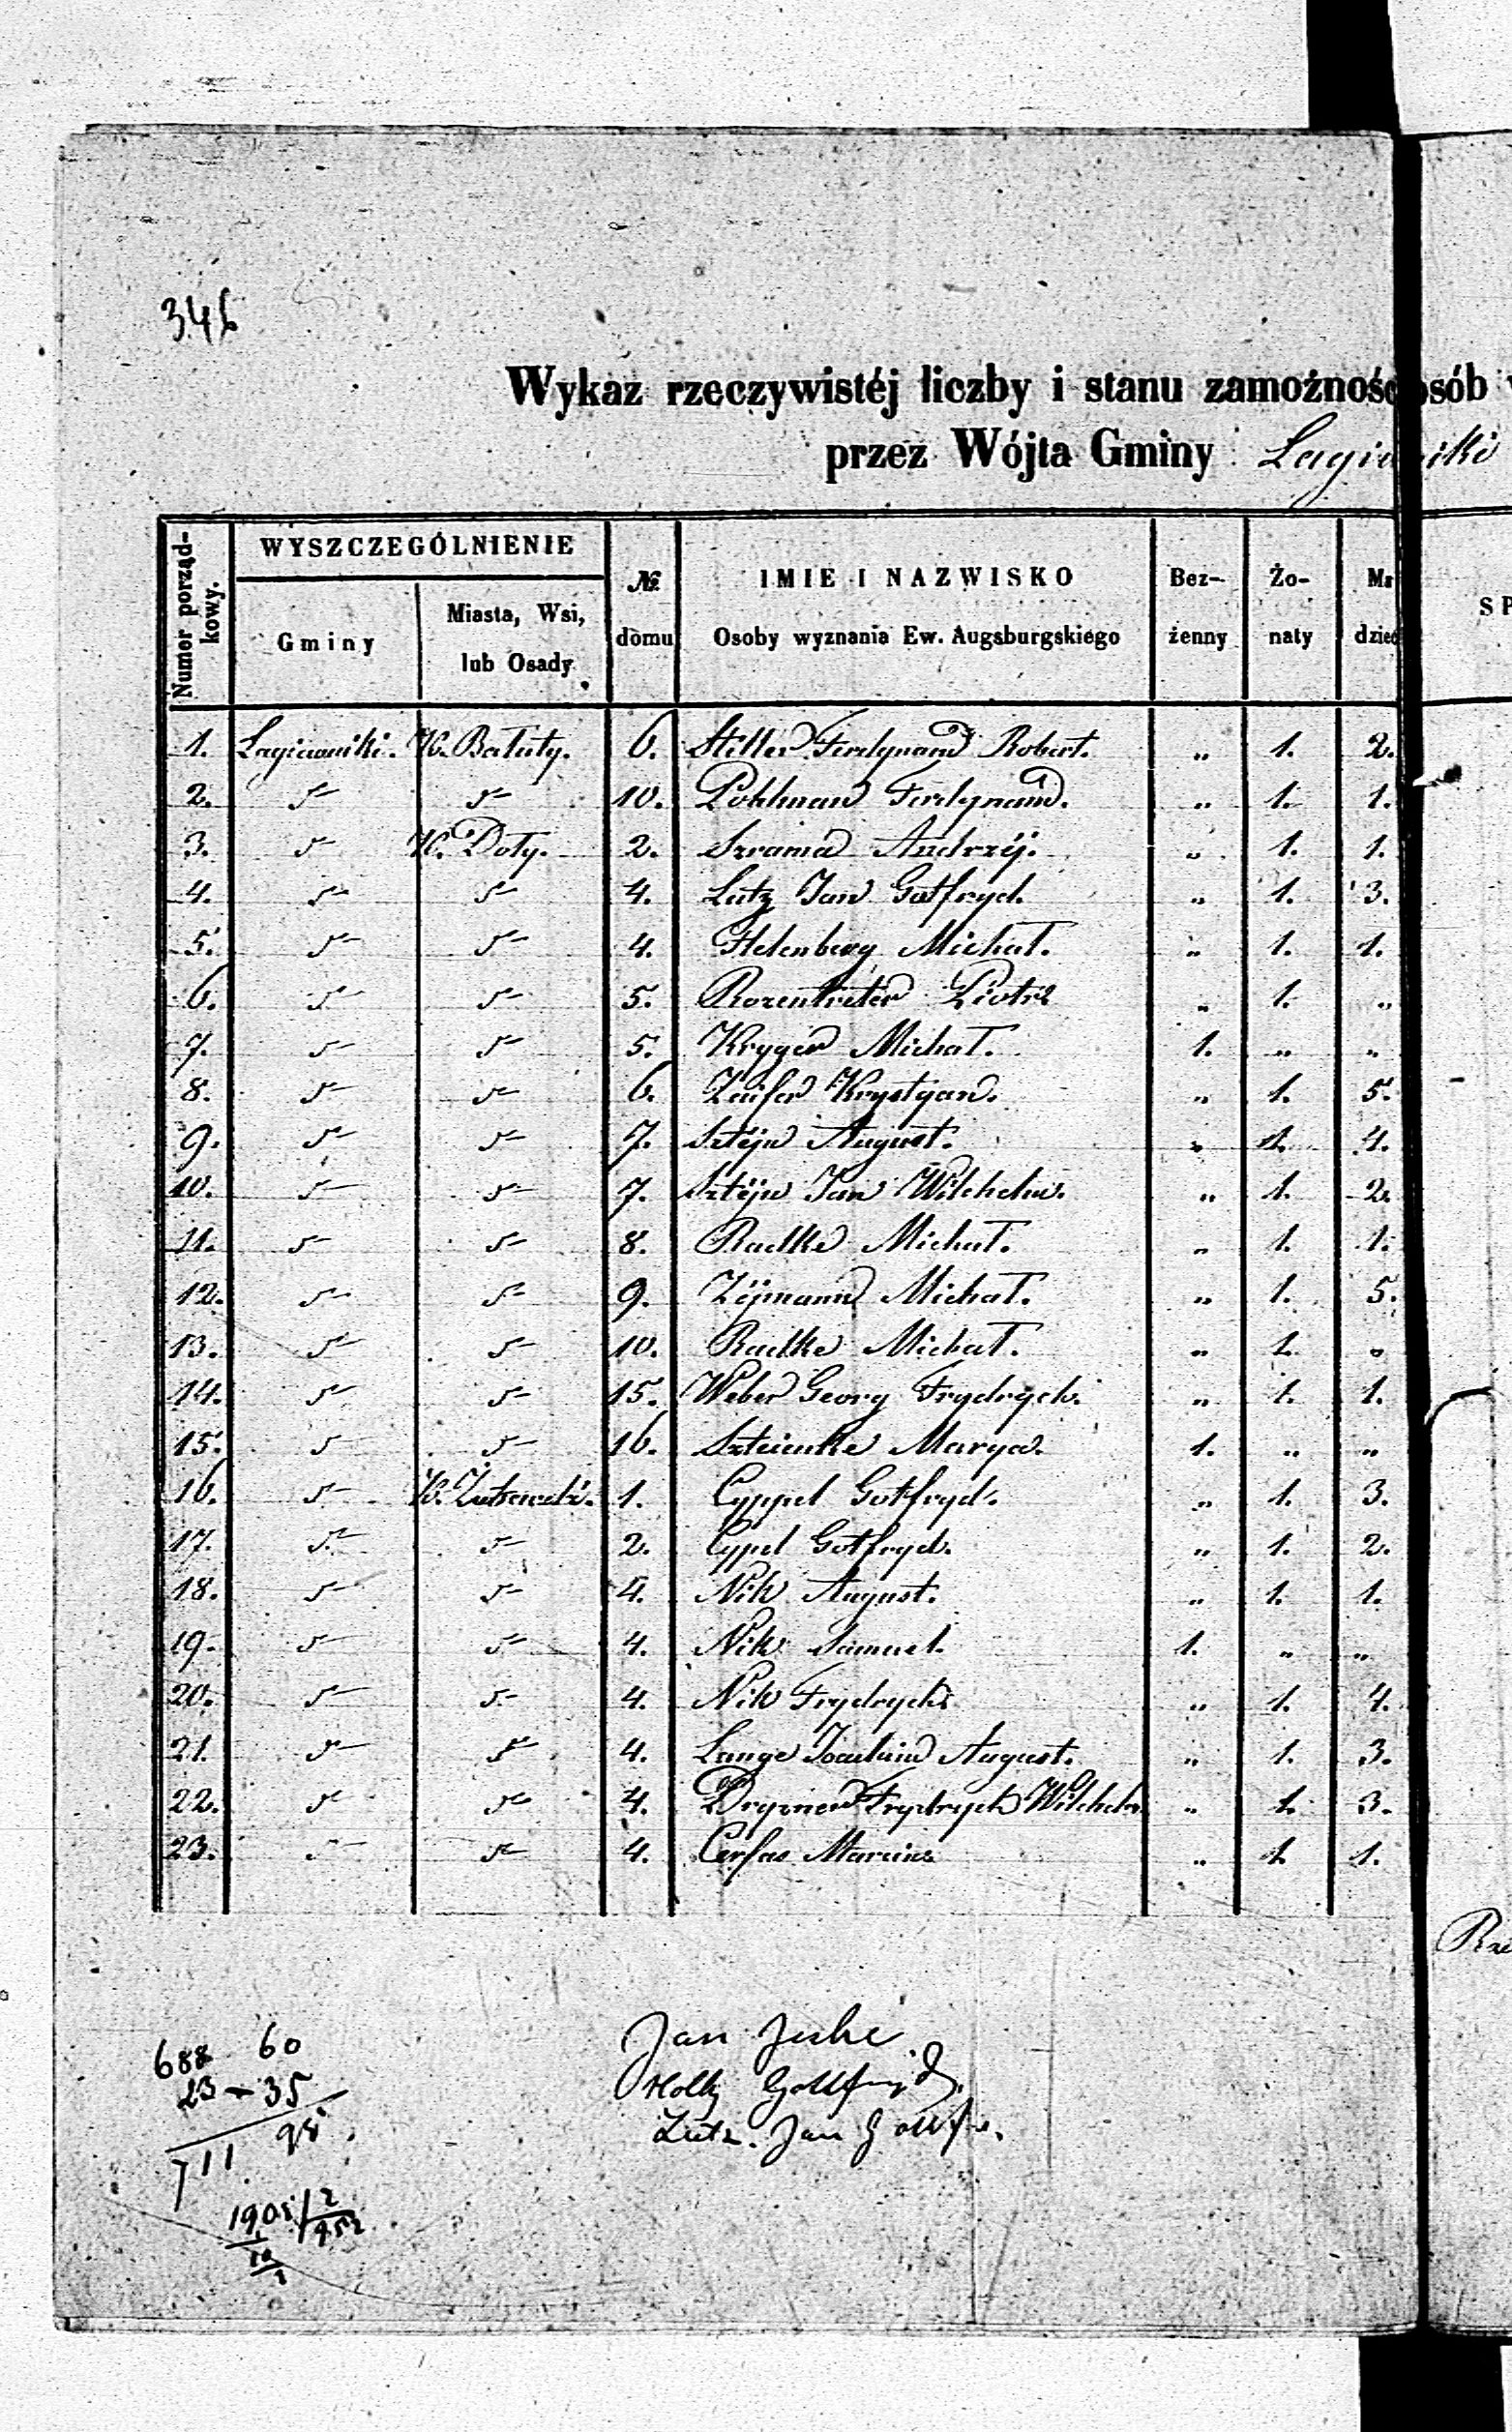 346
Wykaz rzeczywistéj liczby i stanu zamożnośc osób
przez Wójta Gminy Łagiewniki
Numer porządkowy.
WYSZCZEGÓLNIENIE
Gminy
Miasta, Wsi, lub Osady
№ domu
IMIE I NAZWISKO
Osoby wyznania Ew. Augsburgskiego
Bez-żenny
Żo-naty
dziec
SP
1. Łagiewniki. K. Bałuty. 6. Stiller Ferdynand Robert. „ 1. 2.
2. 10. Pohlman Ferdynand. „ 1. 1.
3. K. Doły. 2. Szrama Andrzéj. „ 1. 1.
4. 4. Lutz Jan Gotfryd. „ 1. 3.
5. 4. Helenberg Michał. „ 1. 1.
6. 5. Rozentreter Piotr „ 1. „
7. 5. Kryger Michał. 1. „ „
8. 6. Zaifer Krystyan. „ 1. 5.
9. 7. Sztéjn August. „ 1. 4.
10. 7. Sztéjn Jan Wilchelm. „ 1. 2.
11. 8. Radke Michał. „ 1. 1.
12. 9. Zéjmann Michał. „ 1. 5.
13. 10. Radke Michał. „ 1. „
14. 15. Weber Georg Frydrych. „ 1. 1.
15. 16. Marya. 1. „ „
16. 1. Cyppel Gotfryd. „ 1. 3.
17. 2. Cypel Gotfryd. „ 1. 2.
18. 4. Nik August. „ 1. 1.
19. 4. Nik Samuel. 1. „ „
20. 4. Nik Frydrych „ 1. 4.
21. 4. Lange August. „ 1. 3.
22. 4. Frydrych Wilchelm „ 1. 3.
23. 4. Cerfas Marcin „ 1. 1.
Jan
688 60
Gottfryd
23 – 35
Lutz. Jan Gottf.
711 98